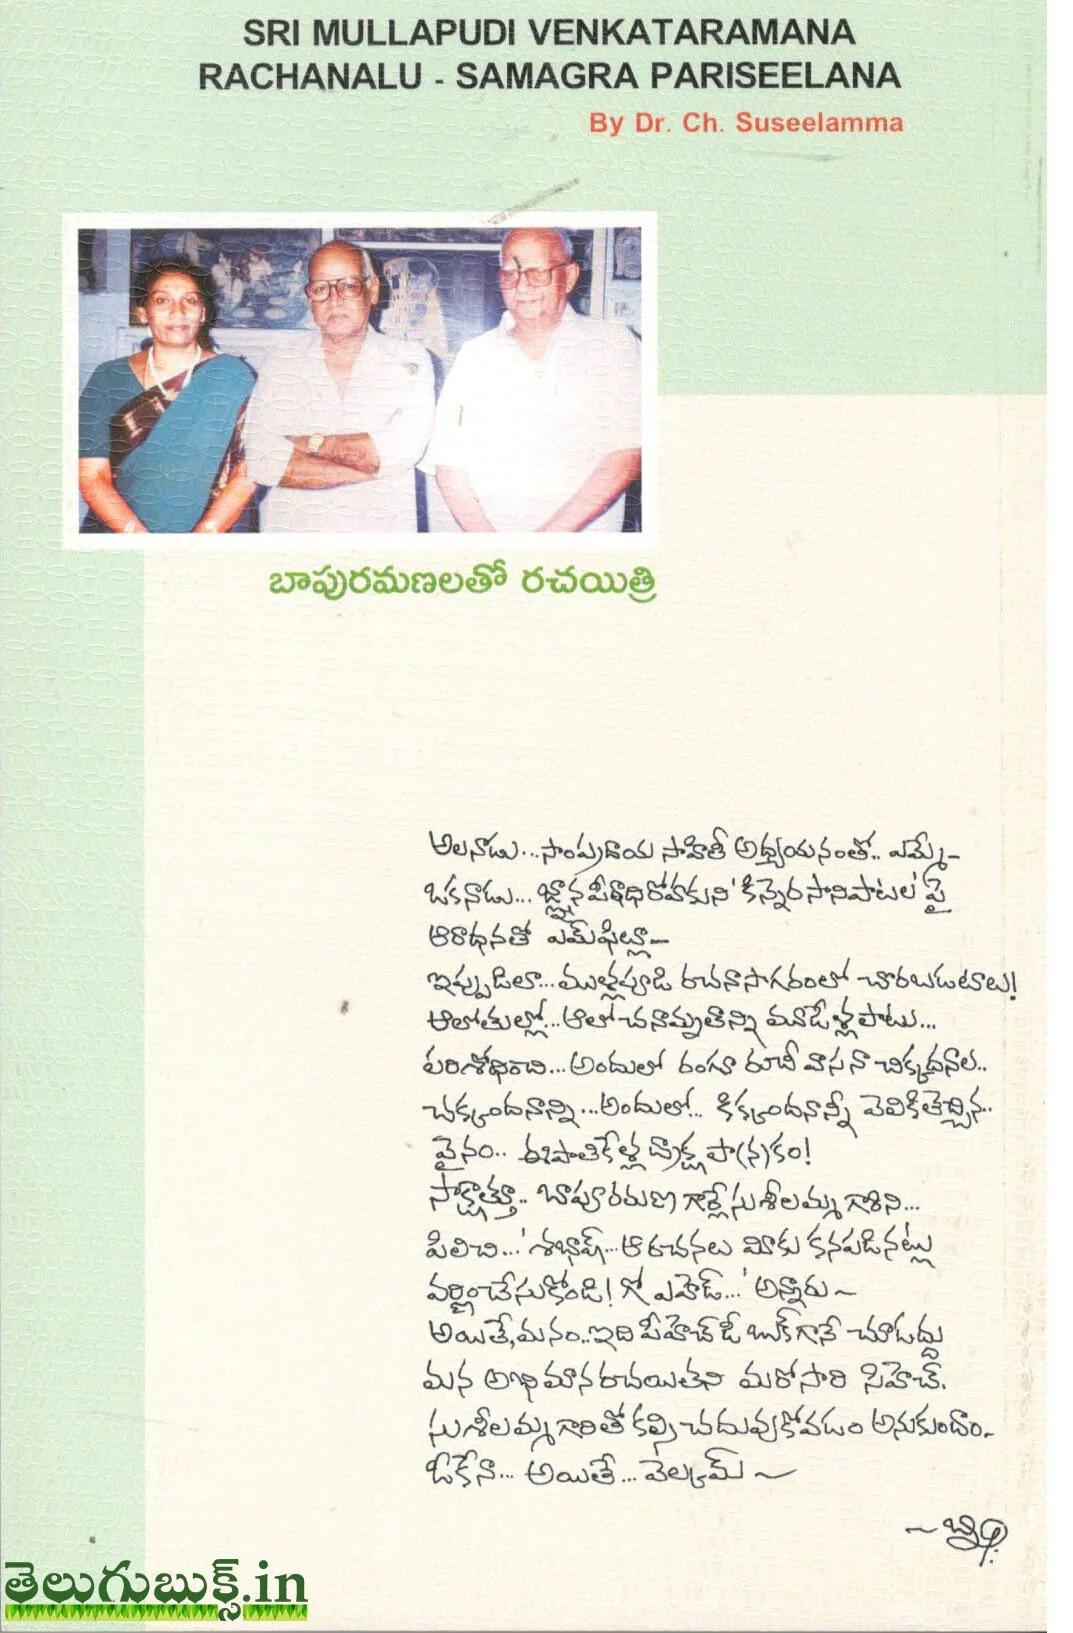 SRI MULLAPUDI VENKATARAMANA
RACHANALU - SAMAGRA PARISEELANA
By Dr. Ch. Suseelamma
బాపురమణలతో రచయిత్రి
అలనాడు...సాంప్రదాయ సాహితీ అధ్యయనంతో.. ఎమ్మే-
ఒకనాడు... జ్ఞానపీఠాధిరోహకుని 'కిన్నెరసానిపాటల' పై
ఆరాధనతో ఎమ్‌ఫిల్లూ-
ఇప్పుడిలా...ముళ్లపూడి రచనాసాగరంలో చొరబడటాలు!
ఆలోతుల్లో...ఆలోచనామృతాన్ని మూడేళ్లపాటు...
పరిశోధించి...అందులో రంగూ రుచీ వాసనా చిక్కదనాల..
చక్కందనాన్ని...అందులో.. కిక్కందనాన్నీ వెలికితెచ్చిన..
వైనం.. ఈపాతికేళ్ల ద్రాక్షపా(న)కం!
సాక్షాత్తూ.. బాపూరమణ గార్లే సుశీలమ్మ గారిని...
పిలిచి...'శభాష్...ఆ రచనలు మీకు కనపడినట్లు
వర్ణించేసుకోండి! గో ఎహెడ్...' అన్నారు~
అయితే,మనం..ఇది పీహెచ్‌డీ బుక్‌గానే చూడద్దు
మన అభిమానరచయితని మరోసారి సిహెచ్.
సుశీలమ్మగారితో కల్సి చదువుకోవడం అనుకుందాం-
ఓకేనా... అయితే... వెల్కమ్ ~
~ బ్నిం
తెలుగుబుక్స్.in